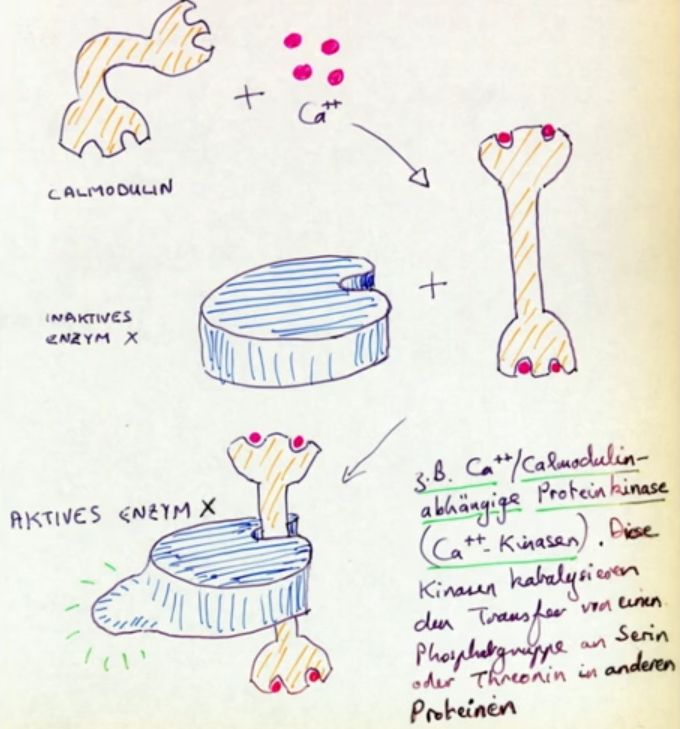 +
Ca++
CALMODULIN
+
INAKTIVES
ENZYM X
AKTIVES ENZYM X
z.B. Ca++/Calmodulin-
abhängige Proteinkinase
(Ca++-Kinasen). Diese
Kinasen katalysieren
den Transfer von einen
Phosphatgruppe an Serin
oder Threonin in anderen
Proteinen